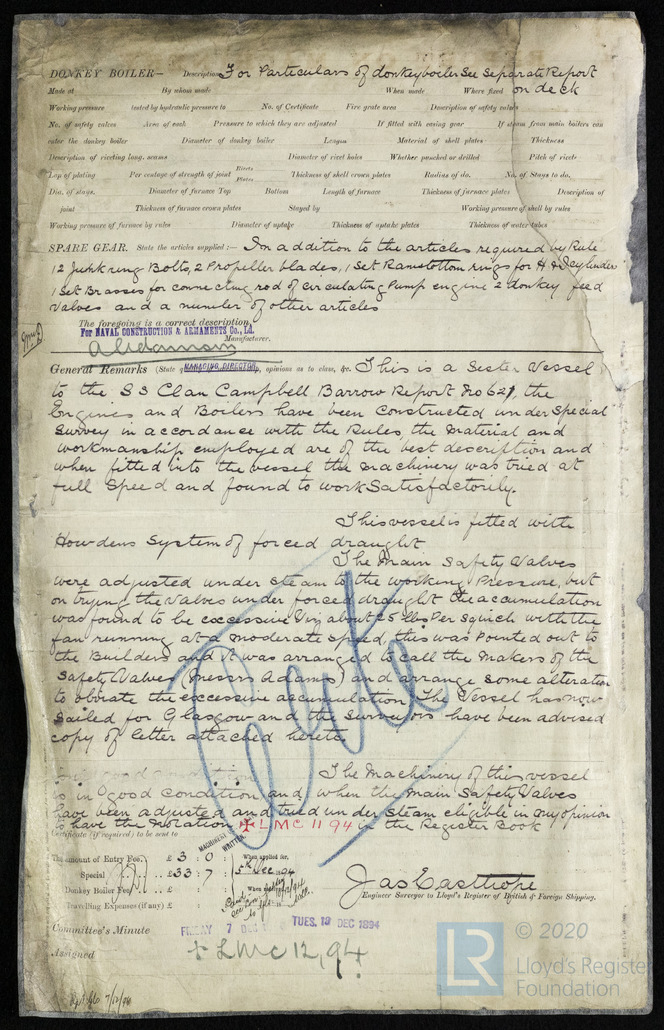 DONKEY BOILER— Description For Particulars of donkey boiler See Separate Report
Made at By whom made When made Where fixed on deck
Working pressure tested by hydraulic pressure to No. of Certificate Fire grate area Description of safety valves
No. of safety valves Area of each Pressure to which they are adjusted If fitted with easing gear If steam from main boilers can
enter the donkey boiler Diameter of donkey boiler Length Material of shell plates Thickness
Description of riveting long. seams Diameter of rivet holes Whether punched or drilled Pitch of rivets
Lap of plating Per centage of strength of joint Rivets Plates Thickness of shell crown plates Radius of do. No. of Stays to do.
Dia. of stays. Diameter of furnace Top Bottom Length of furnace Thickness of furnace plates Description of
joint Thickness of furnace crown plates Stayed by Working pressure of shell by rules
Working pressure of furnace by rules Diameter of uptake Thickness of uptake plates Thickness of water tubes
SPARE GEAR. State the articles supplied:— In addition to the articles required by Rule
12 Junk ring Bolts, 2 Propeller blades, 1 Set Ramsbottom rings for H & I cylinder
1 Set Brasses for connecting rod of circulating Pump engine 2 donkey feed
valves and a number of other articles
The foregoing is a correct description,
For NAVAL CONSTRUCTION & ARMAMENTS Co., Ld.
Manufacturer.
MANAGING DIRECTOR
General Remarks (State opinions as to class, &c. This is a Sister Vessel
to the SS Clan Campbell Barrow Report No 627, the
Engines and Boilers have been constructed under Special
Survey in accordance with the Rules, the Material and
workmanship employed are of the best description and
when fitted into the vessel the machinery was tried at
full Speed and found to work Satisfactorily.
This vessel is fitted with
Howdens System of forced draught
The Main Safety Valves
were adjusted under steam to the working Pressure, but
on trying the valves under forced draught the accumulation
was found to be excessive viz about 25 lbs Per Sq inch with the
fan running at a moderate speed, this was Pointed out to
the Builders and it was arranged to call the Makers of the
Safety Valves (Messrs Adams) and arrange some alteration
to obviate the excessive accumulation. The Vessel has now
sailed for Glasgow and the surveyors have been advised
copy of letter attached hereto.
The Machinery of this vessel
is in good condition and when the Main Safety Valves
have been adjusted and tried under steam eligible in my opinion
to have the notation ✠ LMC 11 94 in the Register Book
Certificate (if required) to be sent to
The amount of Entry Fee .. £ 3 : 0 : When applied for,
Special .. £ 33 : 7 : 5th Dec 1894
Donkey Boiler Fee £ When
Travelling Expenses (if any) £
Jas Easthope
Engineer Surveyor to Lloyd's Register of British & Foreign Shipping.
Committee's Minute FRIDAY 7 DEC TUES. 13 DEC 1894
Assigned + LMC 12,94
© 2020
LR
Lloyd's Register
Foundation